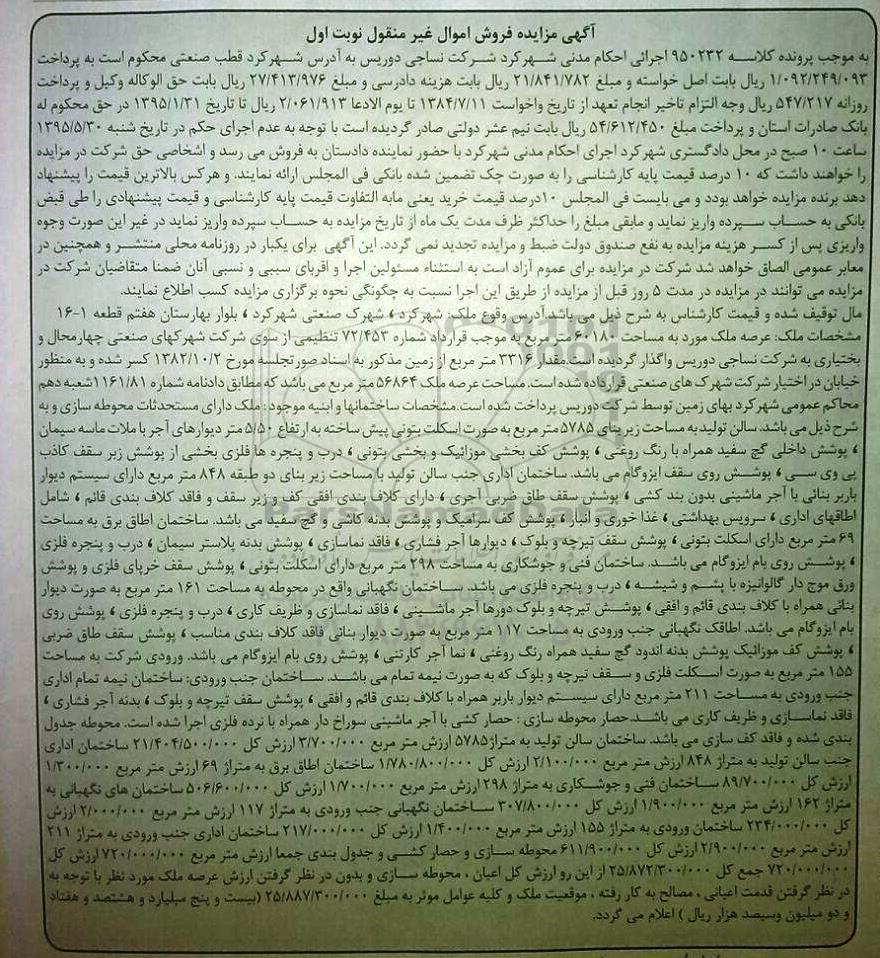 آگهی مزایده فروش اموال غیر منقول نوبت اول
به موجب پرونده کلاسه ۹۵۰۲۳۲ اجرائی احکام مدنی شهرکرد شرکت نساجی دوریس به آدرس شهرکرد قطب صنعتی محکوم است به پرداخت
۱/۰۹۲/۲۴۹/۰۹۳ ریال بابت اصل خواسته و مبلغ ۲۱/۸۴۱/۷۸۲ ریال بابت هزینه دادرسی و مبلغ ۲۷/۴۱۳/۹۷۶ ریال بابت حق الوکاله وکیل و پرداخت
روزانه ۵۴۷/۲۱۷ ریال وجه التزام تاخیر انجام تعهد از تاریخ واخواست ۱۳۸۴/۷/۱۱ تا یوم الادعا ۲/۰۶۱/۹۱۳ ریال تا تاریخ ۱۳۹۵/۱/۳۱ در حق محکوم له
بانک صادرات استان و پرداخت مبلغ ۵۴/۶۱۲/۴۵۰ ریال بابت نیم عشر دولتی صادر گردیده است با توجه به عدم اجرای حکم در تاریخ شنبه ۱۳۹۵/۵/۳۰
ساعت ۱۰ صبح در محل دادگستری شهرکرد اجرای احکام مدنی شهرکرد با حضور نماینده دادستان به فروش می رسد و اشخاصی حق شرکت در مزایده
را خواهند داشت که ۱۰ درصد قیمت پایه کارشناسی را به صورت چک تضمین شده بانکی فی المجلس ارائه نمایند. و هرکس بالاترین قیمت را پیشنهاد
دهد برنده مزایده خواهد بودد و می بایست فی المجلس ۱۰درصد قیمت خرید یعنی مابه التفاوت قیمت پایه کارشناسی و قیمت پیشنهادی را طی قبض
بانکی به حساب سپرده واریز نماید و مابقی مبلغ را حداکثر ظرف مدت یک ماه از تاریخ مزایده به حساب سپرده واریز نماید در غیر این صورت وجوه
واریزی پس از کسر هزینه مزایده به نفع صندوق دولت ضبط و مزایده تجدید نمی گردد. این آگهی برای یکبار در روزنامه محلی منتشر و همچنین در
معابر عمومی الصاق خواهد شد شرکت در مزایده برای عموم آزاد است به استثناء مسئولین اجرا و اقربای سببی و نسبی آنان ضمنا متقاضیان شرکت در
مزایده می توانند در مزایده در مدت ۵ روز قبل از مزایده از طریق این اجرا نسبت به چگونگی نحوه برگزاری مزایده کسب اطلاع نمایند.
مال توقیف شده و قیمت کارشناس به شرح ذیل می باشد.آدرس وقوع ملک: شهرکرد ، شهرک صنعتی شهرکرد ، بلوار بهارستان هفتم قطعه ۱-۱۶
مشخصات ملک: عرصه ملک مورد به مساحت ۶۰۱۸۰ متر مربع به موجب قرارداد شماره ۷۲/۴۵۳ تنظیمی از سوی شرکت شهرکهای صنعتی چهارمحال و
بختیاری به شرکت نساجی دوریس واگذار گردیده است. مقدار ۳۳۱۶ متر مربع از زمین مذکور به اسناد صورتجلسه مورخ ۱۳۸۲/۱۰/۲ کسر شده و به منظور
خیابان در اختیار شرکت شهرک های صنعتی قرار داده شده است. مساحت عرصه ملک ۵۶۸۶۴ متر مربع می باشد که مطابق دادنامه شماره ۱۱۶۱/۸۱شعبه دهم
محاکم عمومی شهرکرد بهای زمین توسط شرکت دوریس پرداخت شده است.مشخصات ساختمانها و ابنیه موجود: ملک دارای مستحدثات محوطه سازی و به
شرح ذیل می باشد. سالن تولید به مساحت زیر بنای ۵۷۸۵ متر مربع به صورت اسکلت بتونی پیش ساخته به ارتفاع ۵/۵۰ متر دیوارهای آجر با ملات ماسه سیمان
، پوشش داخلی گچ سفید همراه با رنگ روغنی ، پوشش کف بخشی موزائیک و بخشی بتونی ، درب و پنجره ها فلزی بخشی از پوشش زیر سقف کاذب
پی وی سی ، پوشش روی سقف ایزوگام می باشد. ساختمان اداری جنب سالن تولید با مساحت زیر بنای دو طبقه ۸۴۸ متر مربع دارای سیستم دیوار
باربر بنائی با آجر ماشینی بدون بند کشی ، پوشش سقف طاق ضربی آجری ، دارای کلاف بندی افقی کف و زیر سقف و فاقد کلاف بندی قائم ، شامل
اطاقهای اداری ، سرویس بهداشتی ، غذا خوری و انبار ، پوشش کف سرامیک و پوشش بدنه کاشی و گچ سفید می باشد. ساختمان اطاق برق به مساحت
۶۹ متر مربع دارای اسکلت بتونی ، پوشش سقف تیرچه و بلوک ، دیوارها آجر فشاری ، فاقد نماسازی ، پوشش بدنه پلاستر سیمان ، درب و پنجره فلزی
، پوشش روی بام ایزوگام می باشد. ساختمان فنی و جوشکاری به مساحت ۲۹۸ متر مربع دارای اسکلت بتونی ، پوشش سقف خرپای فلزی و پوشش
ورق موج دار گالوانیزه با پشم و شیشه ، درب و پنجره فلزی می باشد. ساختمان نگهبانی واقع در محوطه به مساحت ۱۶۱ متر مربع به صورت دیوار
بنائی همراه با کلاف بندی قائم و افقی ، پوشش تیرچه و بلوک دورها آجر ماشینی ، فاقد نماسازی و ظریف کاری ، درب و پنجره فلزی ، پوشش روی
بام ایزوگام می باشد. اطاقک نگهبانی جنب ورودی به مساحت ۱۱۷ متر مربع به صورت دیوار بنائی فاقد کلاف بندی مناسب ، پوشش سقف طاق ضربی
، پوشش کف موزائیک پوشش بدنه اندود گچ سفید همراه رنگ روغنی ، نما آجر کارتنی ، پوشش روی بام ایزوگام می باشد. ورودی شرکت به مساحت
۱۵۵ متر مربع به صورت اسکلت فلزی و سقف تیرچه و بلوک که به صورت نیمه تمام می باشد. ساختمان جنب ورودی: ساختمان نیمه تمام اداری
جنب ورودی به مساحت ۲۱۱ متر مربع دارای سیستم دیوار باربر همراه با کلاف بندی قائم و افقی ، پوشش سقف تیرچه و بلوک ، بدنه آجر فشاری ،
فاقد نماسازی و ظریف کاری می باشد.حصار محوطه سازی : حصار کشی با آجر ماشینی سوراخ دار همراه با نرده فلزی اجرا شده است. محوطه جدول
بندی شده و فاقد کف سازی می باشد. ساختمان سالن تولید به متراژ۵۷۸۵ ارزش متر مربع ۳/۷۰۰/۰۰۰ ارزش کل ۲۱/۴۰۴/۵۰۰/۰۰۰ ساختمان اداری
جنب سالن تولید به متراژ ۸۴۸ ارزش متر مربع ۲/۱۰۰/۰۰۰ ارزش کل ۱/۷۸۰/۸۰۰/۰۰۰ ساختمان اطاق برق به متراژ ۶۹ ارزش متر مربع ۱/۳۰۰/۰۰۰
ارزش کل ۸۹/۷۰۰/۰۰۰ ساختمان فنی و جوشکاری به متراژ ۲۹۸ ارزش متر مربع ۱/۷۰۰/۰۰۰ ارزش کل ۵۰۶/۶۰۰/۰۰۰ ساختمان های نگهبانی به
متراژ ۱۶۲ ارزش متر مربع ۱/۹۰۰/۰۰۰ ارزش کل ۳۰۷/۸۰۰/۰۰۰ ساختمان نگهبانی جنب ورودی به متراژ ۱۱۷ ارزش متر مربع ۲/۰۰۰/۰۰۰ ارزش
کل ۲۳۴/۰۰۰/۰۰۰ ساختمان ورودی به متراژ ۱۵۵ ارزش متر مربع ۱/۴۰۰/۰۰۰ ارزش کل ۲۱۷/۰۰۰/۰۰۰ ساختمان اداری جنب ورودی به متراژ ۲۱۱
ارزش متر مربع ۲/۹۰۰/۰۰۰ ارزش کل ۶۱۱/۹۰۰/۰۰۰ محوطه سازی و حصار کشی و جدول بندی جمعا ارزش متر مربع ۷۲۰/۰۰۰/۰۰۰ ارزش کل
۷۲۰/۰۰۰/۰۰۰ جمع کل ۲۵/۸۷۲/۳۰۰/۰۰۰ از این رو ارزش کل اعیان ، محوطه سازی و بدون در نظر گرفتن ارزش عرصه ملک مورد نظر با توجه به
در نظر گرفتن قدمت اعیانی ، مصالح به کار رفته ، موقعیت ملک و کلیه عوامل موثر به مبلغ ۲۵/۸۸۷/۳۰۰/۰۰۰ (بیست و پنج میلیارد و هشتصد و هفتاد
و دو میلیون وسیصد هزار ریال ) اعلام می گردد.
ParsNamadData